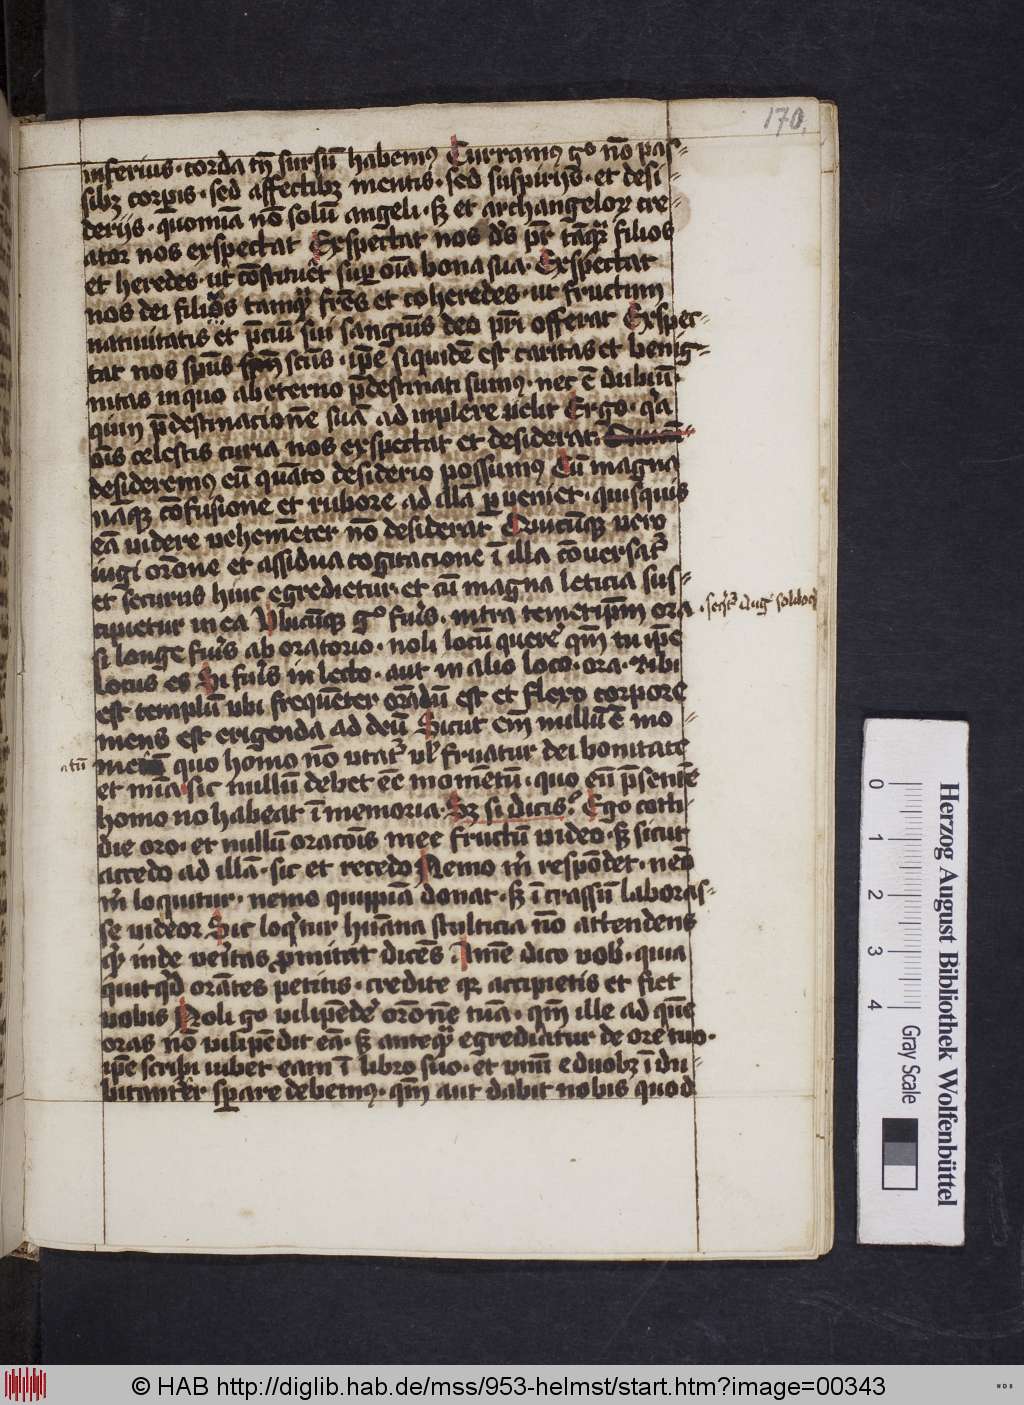 170.
inferius · corda tn̄ sursū habemꝰ Curramꝰ gͦ nō pas⸗
sibꝫ corꝑis · sed affectibꝫ mentis · sed suspirijs · et desi⸗
derijs · quoniā nō solū angeli · sꝫ et archangeloꝝ cre⸗
ator nos exspectat Exspectat nos dꝰs pr̄ tāꝙ filios
et heredes · ut cōstituēt suꝑ oīa bona sua · Exspectat
nos dei filiꝰ tamꝙ fr̄es et coheredes · ut fructum
natiuitatis et p̄ciū sui sanguīs deo pr̄i offerat Exspec⸗
tat nos spūs sctūs · ip̄e siquidē est caritas et benig⸗
nitas in quo ab eterno p̄destinati sumꝰ · nec ē dubiū ·
quin p̄destinacionē suā adinplere uelit Ergo · qͣ
oīs celestis curia nos exspectat et desiderat ·
desideremꝰ eū quāto desiderio possumꝰ Cū magna
naꝙ cōfusione et rubore ad illā ꝑueniet · quisquis
eā uidere uehemēter nō desiderat Quicūꝙ uero
iugi orōne et assidua cogitacione ī illa cōuersatͬ
et securus hinc egredietur · et cū magna leticia sus⸗
cipietur in ea Vbicūꝙ gͦ fuis · intra temetip̄m ora · seqͬ Aug solıloqͥ
si longe fuis ab oratorio · noli locū querē qm̄ tu ip̄e
locus es Si fuis in lecto · aut in alio loco · ora · Tibi
est templū vbi frequēter orādū est et flexo corpore
mens est erigenda ad deū Sicut em̄ nullū ē mo⸗
atū
men quo homo nō utatͬ ul̓ fruatur dei bonitate
et mīa sic nullū debet eē momētū · quo eū p̄sentē
homo nō habeat ī memoria · Sꝫ si dicis · Ego coti⸗
die oro · et nullū oracōis mee fructū video · sꝫ sicut
accedo ad illā · sic et recedo Nemo m̄ respōdet · nēo
m̄ loquitur · nemo quippiā donat · sꝫ ī cassū laboras⸗
se uideor Sic loqͥtur hūana stulticia nō attendens
qͥ inde veritas ꝓmittat dicēs Amē dico vob̄ · quia
quitqͥd orātes petitis · credite qꝫ accipietis et fiet
vobis Noli gͦ vilipēdē orōnē tuā · qm̄ ille ad quē
oras nō vilipēdit eā · sꝫ anteꝙ egrediatur de ore tuo ·
ip̄e scribi iubet eam ī libro suo · et vnū e duobꝫ īdu⸗
bitanter sperare debemꝰ · qm̄ aut dabit nobis quod
0 1 2 3 4
Gray Scale
Herzog August Bibliothek Wolfenbüttel
© HAB http://diglib.hab.de/mss/953-helmst/start.htm?image=00343